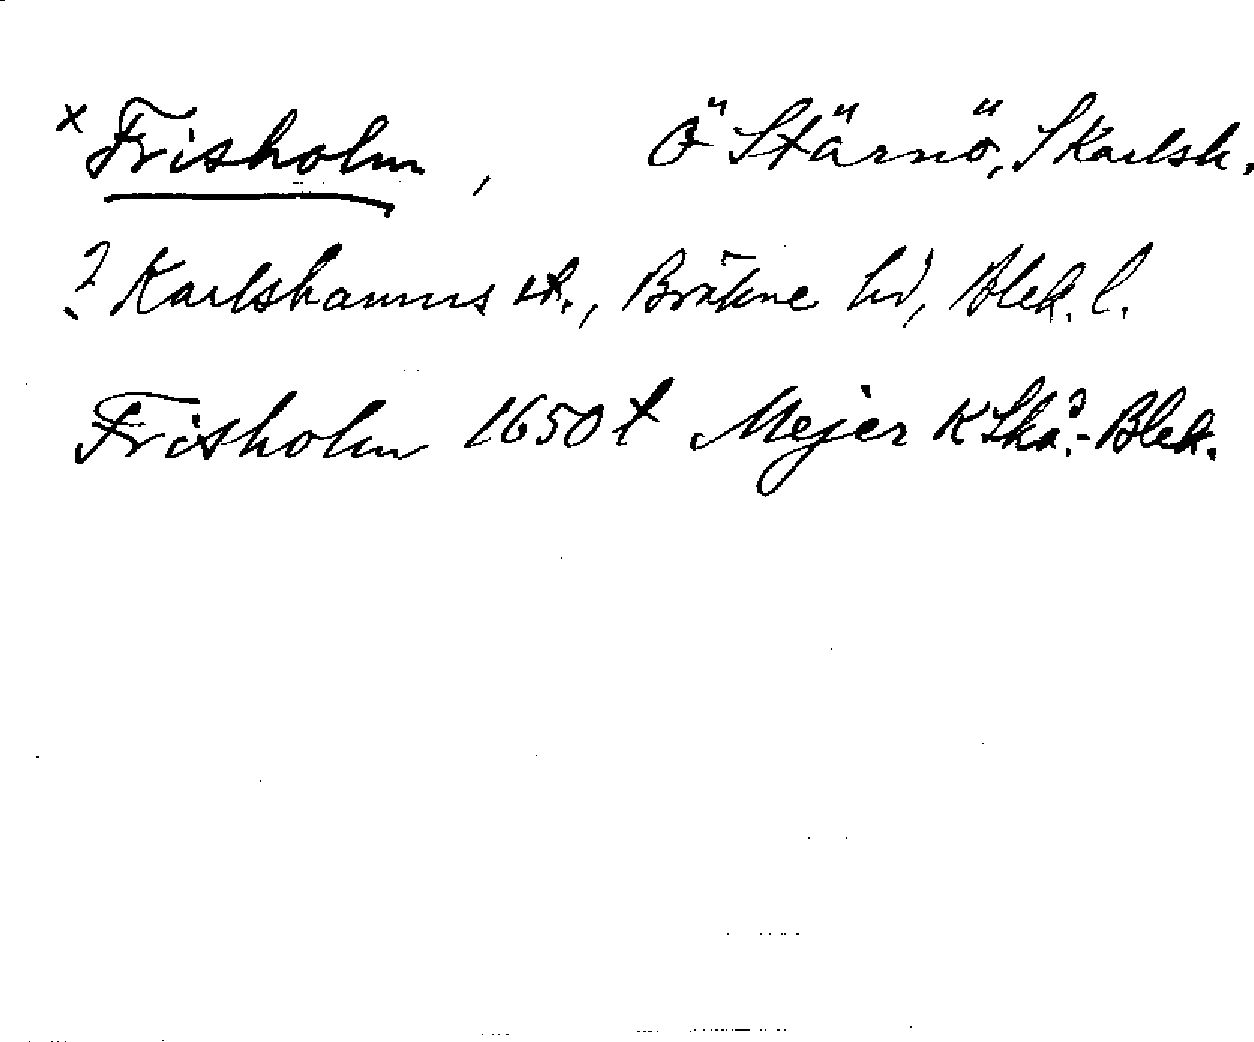 x Frisholm, Ö Stärnö, S Karlsh.
? Karlshamns st., Bräkne hd, Blek. l.
Frisholm 1650 t Mejer K Skå.-Blek.